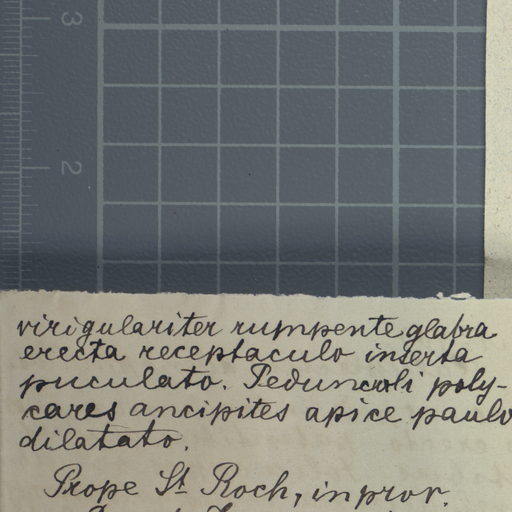 3
2
virigulariter rumpente glabra
erecta receptaculo inserta
puculato. Pedunculi poly-
cares ancipites apice paulo
dilatato.
Prope St. Roch, in prov.